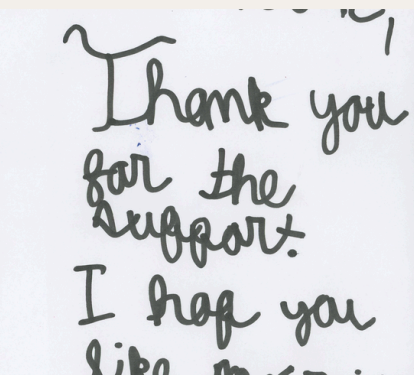 Thank you
for the
support.
I hop you
like